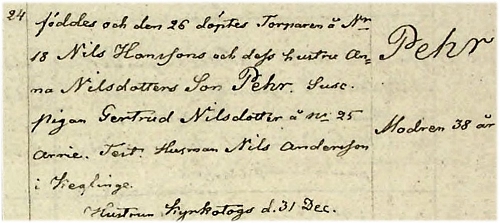 24 föddes och den 26 döptes Torparen å Nr
18 Nils Hanssons och dess hustru An=
na Nilsdotters Son Pehr. Susc.
pigan Gertrud Nilsdotter å nr 25
Arrie. Test. Husman Nils Andersson
i Kieglinge.
Hustrun Kyrkotogs d. 31 Dec.
Pehr
Modren 38 år